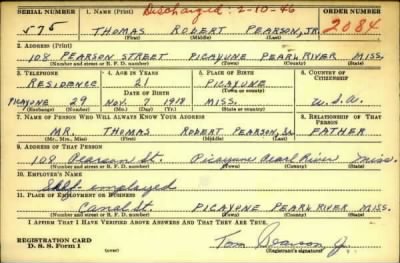 Discharged: 2-10-46
SERIAL NUMBER 1. NAME (Print) ORDER NUMBER
575 THOMAS ROBERT PEARSON, JR. 2084
(First) (Middle) (Last)
2. ADDRESS (Print)
108 PEARSON STREET PICAYUNE PEARL RIVER MISS.
(Number and street or R. F. D. number) (Town) (County) (State)
3. TELEPHONE 4. AGE IN YEARS 5. PLACE OF BIRTH 6. COUNTRY OF CITIZENSHIP
RESIDENCE 21 PICAYUNE
DATE OF BIRTH (Town or county)
PICAYUNE 29 NOV. 7 1918 MISS. U.S.A.
(Exchange) (Number) (Mo.) (Day) (Yr.) (State or country)
7. NAME OF PERSON WHO WILL ALWAYS KNOW YOUR ADDRESS 8. RELATIONSHIP OF THAT PERSON
MR. THOMAS ROBERT PEARSON, SR. FATHER
(Mr., Mrs., Miss) (First) (Middle) (Last)
9. ADDRESS OF THAT PERSON
108 Pearson St. Picayune Pearl River Miss.
(Number and street or R. F. D. number) (Town) (County) (State)
10. EMPLOYER'S NAME
Self-employed
11. PLACE OF EMPLOYMENT OR BUSINESS
Canal St. PICAYUNE PEARL RIVER MISS.
(Number and street or R. F. D. number) (Town) (County) (State)
I AFFIRM THAT I HAVE VERIFIED ABOVE ANSWERS AND THAT THEY ARE TRUE.
REGISTRATION CARD
D. S. S. Form 1
Tom Pearson Jr.
(Registrant's signature)